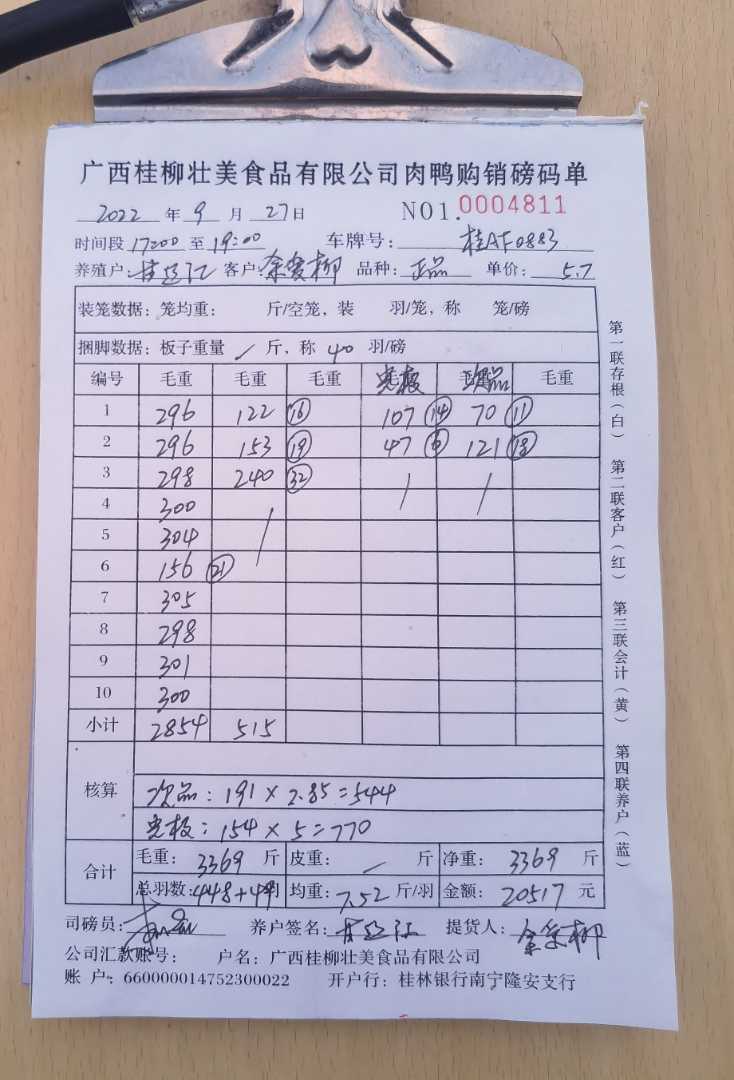 广西桂柳壮美食品有限公司肉鸭购销磅码单
2022 年 9 月 27 日 NO1.0004811
时间段 17:00 至 19:00 车牌号: 桂AF0883
养殖户: 客户: 余爱柳 品种: 正品 单价: 5.7
装笼数据: 笼均重: 斤/空笼, 装 羽/笼, 称 笼/磅
捆脚数据: 板子重量 / 斤, 称 40 羽/磅
编号 毛重 毛重 毛重 光板 次品 毛重
1 296 122 16 107 14 70 11
2 296 153 19 47 6 121 18
3 298 240 32 / /
4 300 /
5 304
6 156 21
7 305
8 298
9 301
10 300
小计 2854 515
核算
次品: 191 × 2.85 = 544
光板: 154 × 5 = 770
合计 毛重: 3369 斤 皮重: / 斤 净重: 3369 斤
总羽数: 448+49 羽 均重: 7.52 斤/羽 金额: 20517 元
司磅员: 养户签名: 提货人: 余爱柳
公司汇款账号: 户名: 广西桂柳壮美食品有限公司
账 户: 660000014752300022 开户行: 桂林银行南宁隆安支行
第一联存根(白) 第二联客户(红) 第三联会计(黄) 第四联养户(蓝)